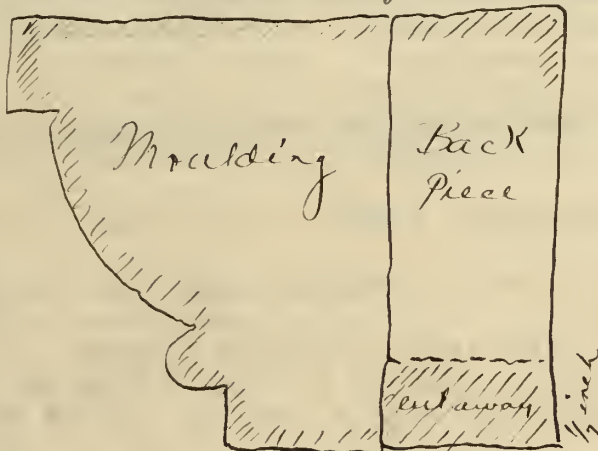 Moulding
Back
Piece
cut away
1/2 inch